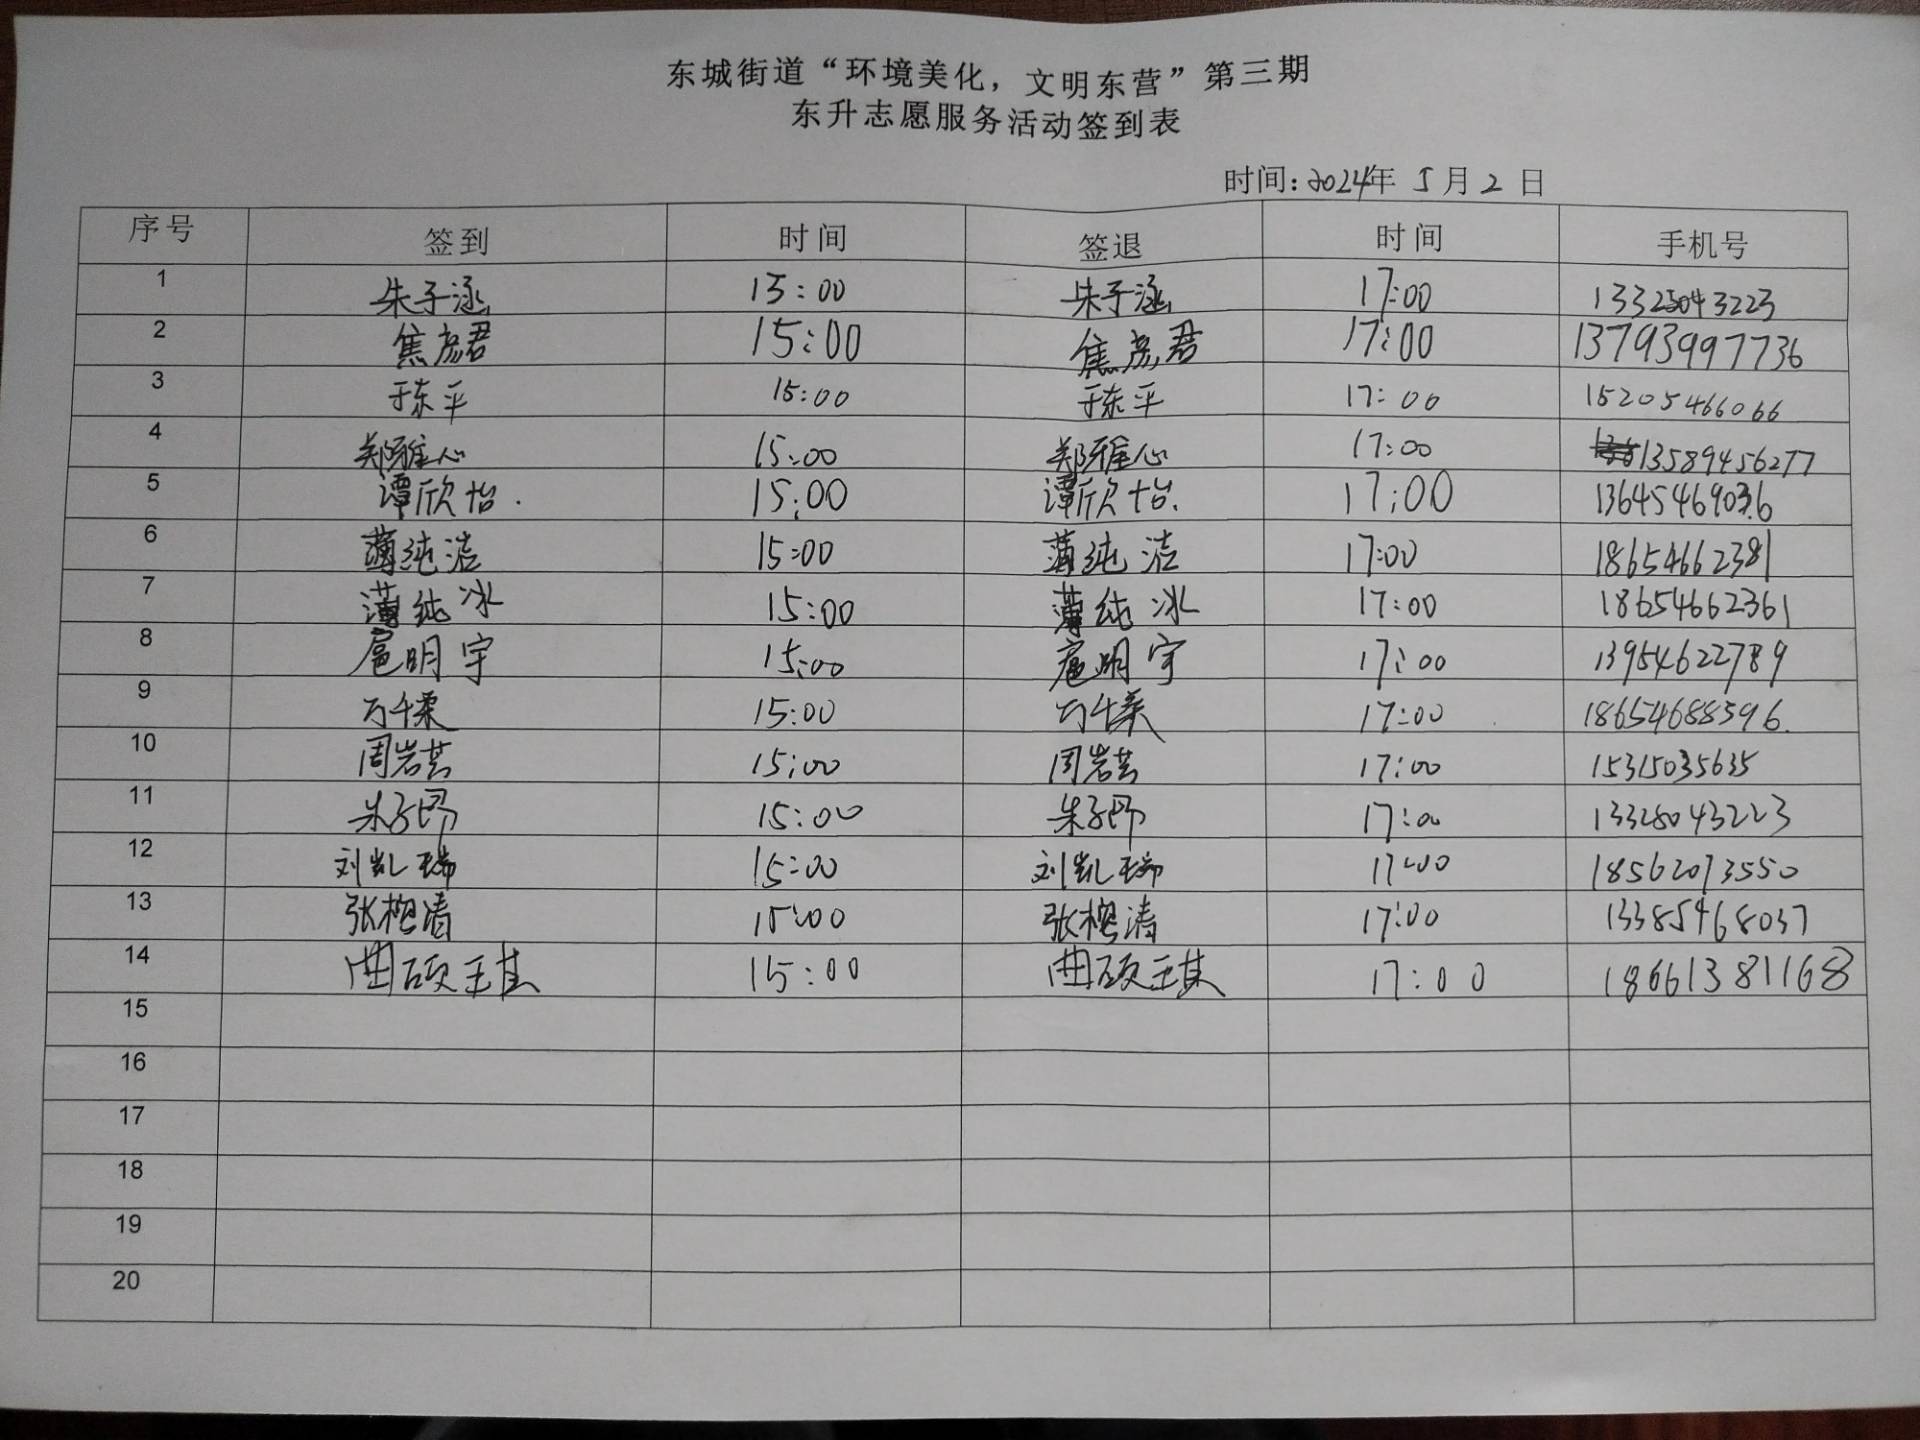 东城街道“环境美化，文明东营”第三期
东升志愿服务活动签到表
时间：2024年 5月2日
序号 签到 时间 签退 时间 手机号
1 朱子涵 15:00 朱子涵 17:00 13325043223
2 焦彦君 15:00 焦彦君 17:00 13793997736
3 于东平 15:00 于东平 17:00 15205466066
4 郑雅心 15:00 郑雅心 17:00 13589456277
5 谭欣怡. 15:00 谭欣怡. 17:00 13645469036
6 薄纯洁 15:00 薄纯洁 17:00 18654662381
7 薄纯冰 15:00 薄纯冰 17:00 18654662361
8 扈明宇 15:00 扈明宇 17:00 13954622789
9 万千柔 15:00 万千柔 17:00 18654688596.
10 周岩芸 15:00 周岩芸 17:00 15315035635
11 朱子昂 15:00 朱子昂 17:00 13325043223
12 刘凯瑞 15:00 刘凯瑞 17:00 18562073550
13 张清 15:00 张清 17:00 13385468037
14 曲硕琪 15:00 曲硕琪 17:00 18661381168
15
16
17
18
19
20